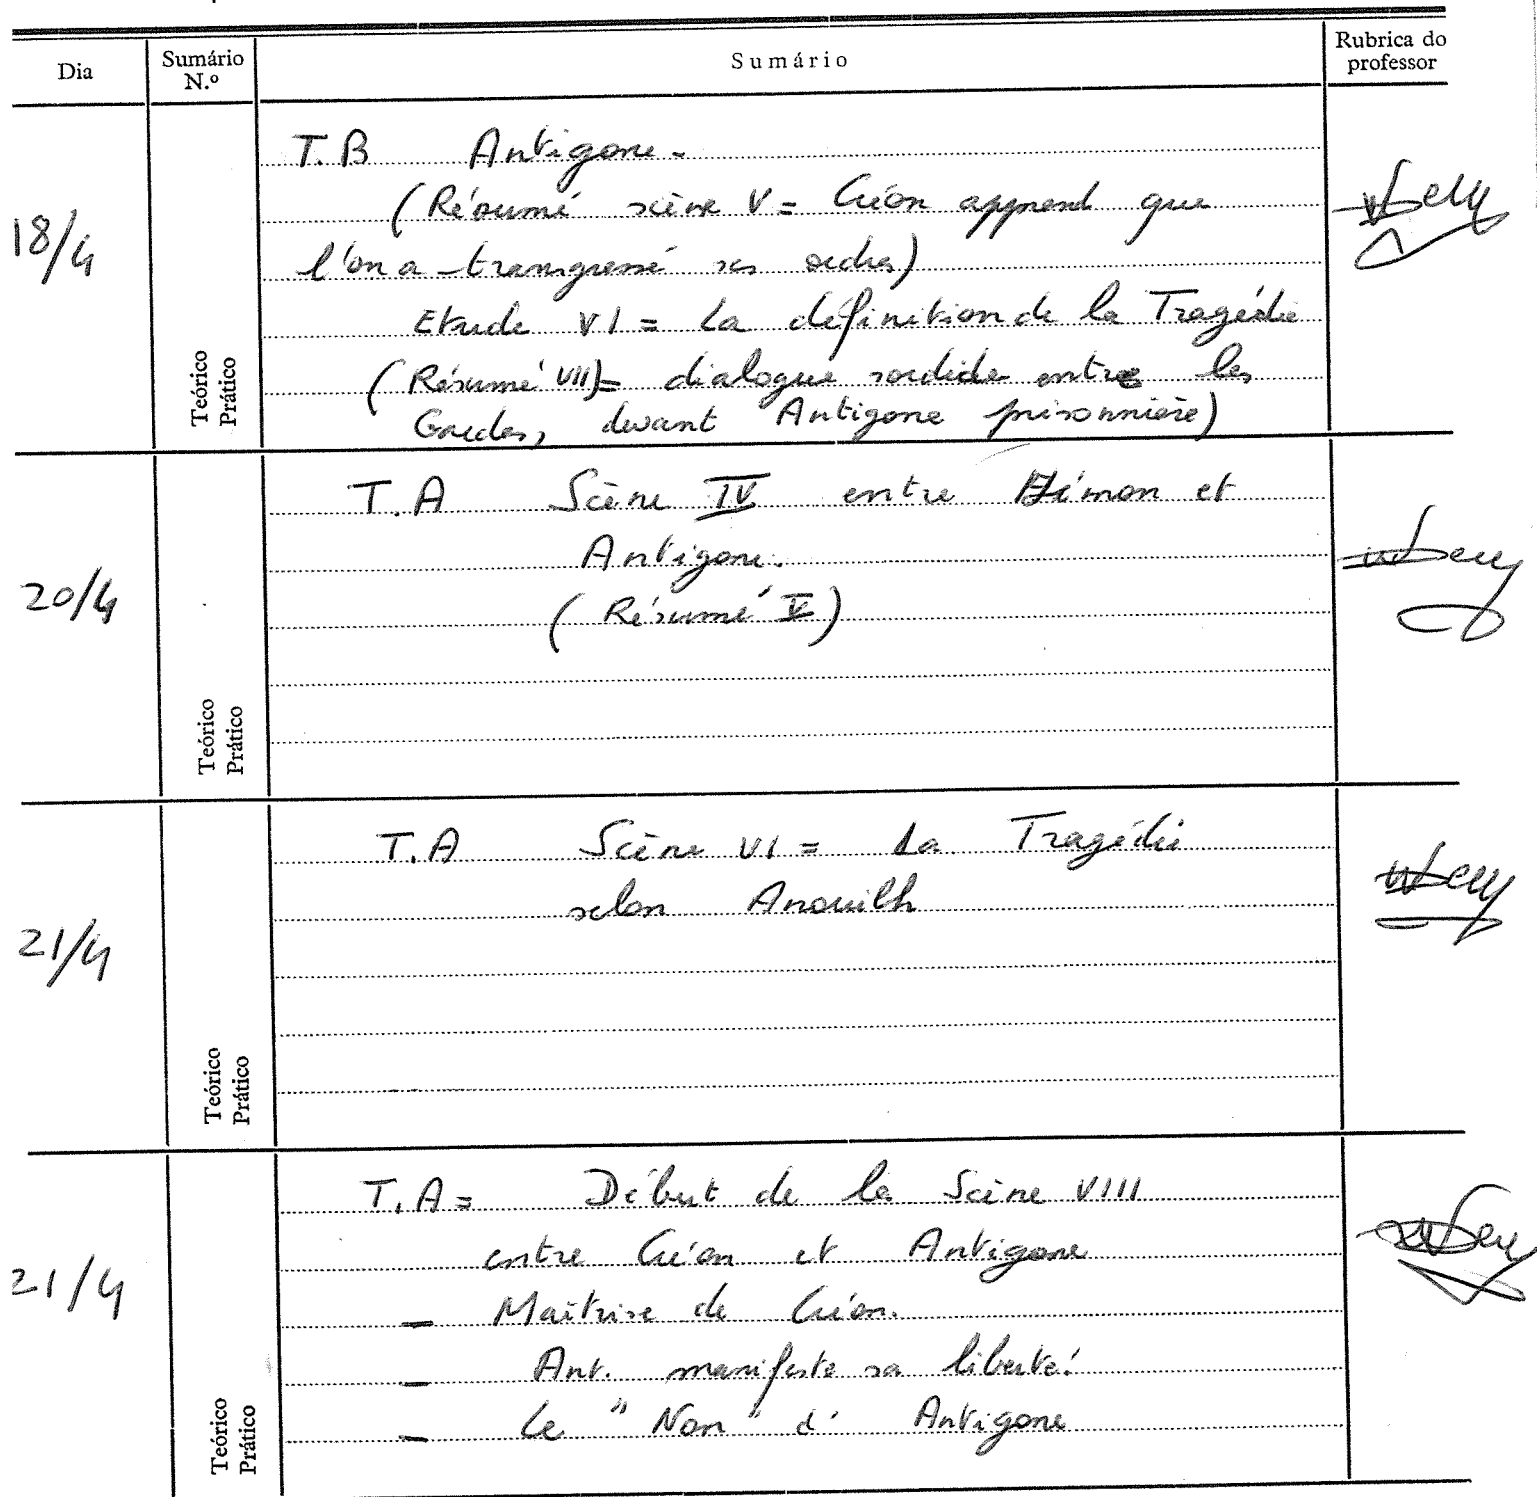 Dia Sumário N.º Sumário Rubrica do professor
18/4
T.B Antigone.
(Résumé scène V = Créon apprend que
l'on a transgressé ses ordres)
Etude VI = La définition de la Tragédie
(Résumé VII) = dialogue sordide entre les
Gardes, devant Antigone prisonnière)
Teórico
Prático
20/4
T.A Scène IV entre Hémon et
Antigone.
(Résumé V)
Teórico
Prático
21/4
T.A Scène VI = La Tragédie
selon Anouilh
Teórico
Prático
21/4
T.A = Début de la Scène VIII
entre Créon et Antigone
– Maîtrise de Créon.
– Ant. manifeste sa liberté.
– Le "Non" d'Antigone
Teórico
Prático